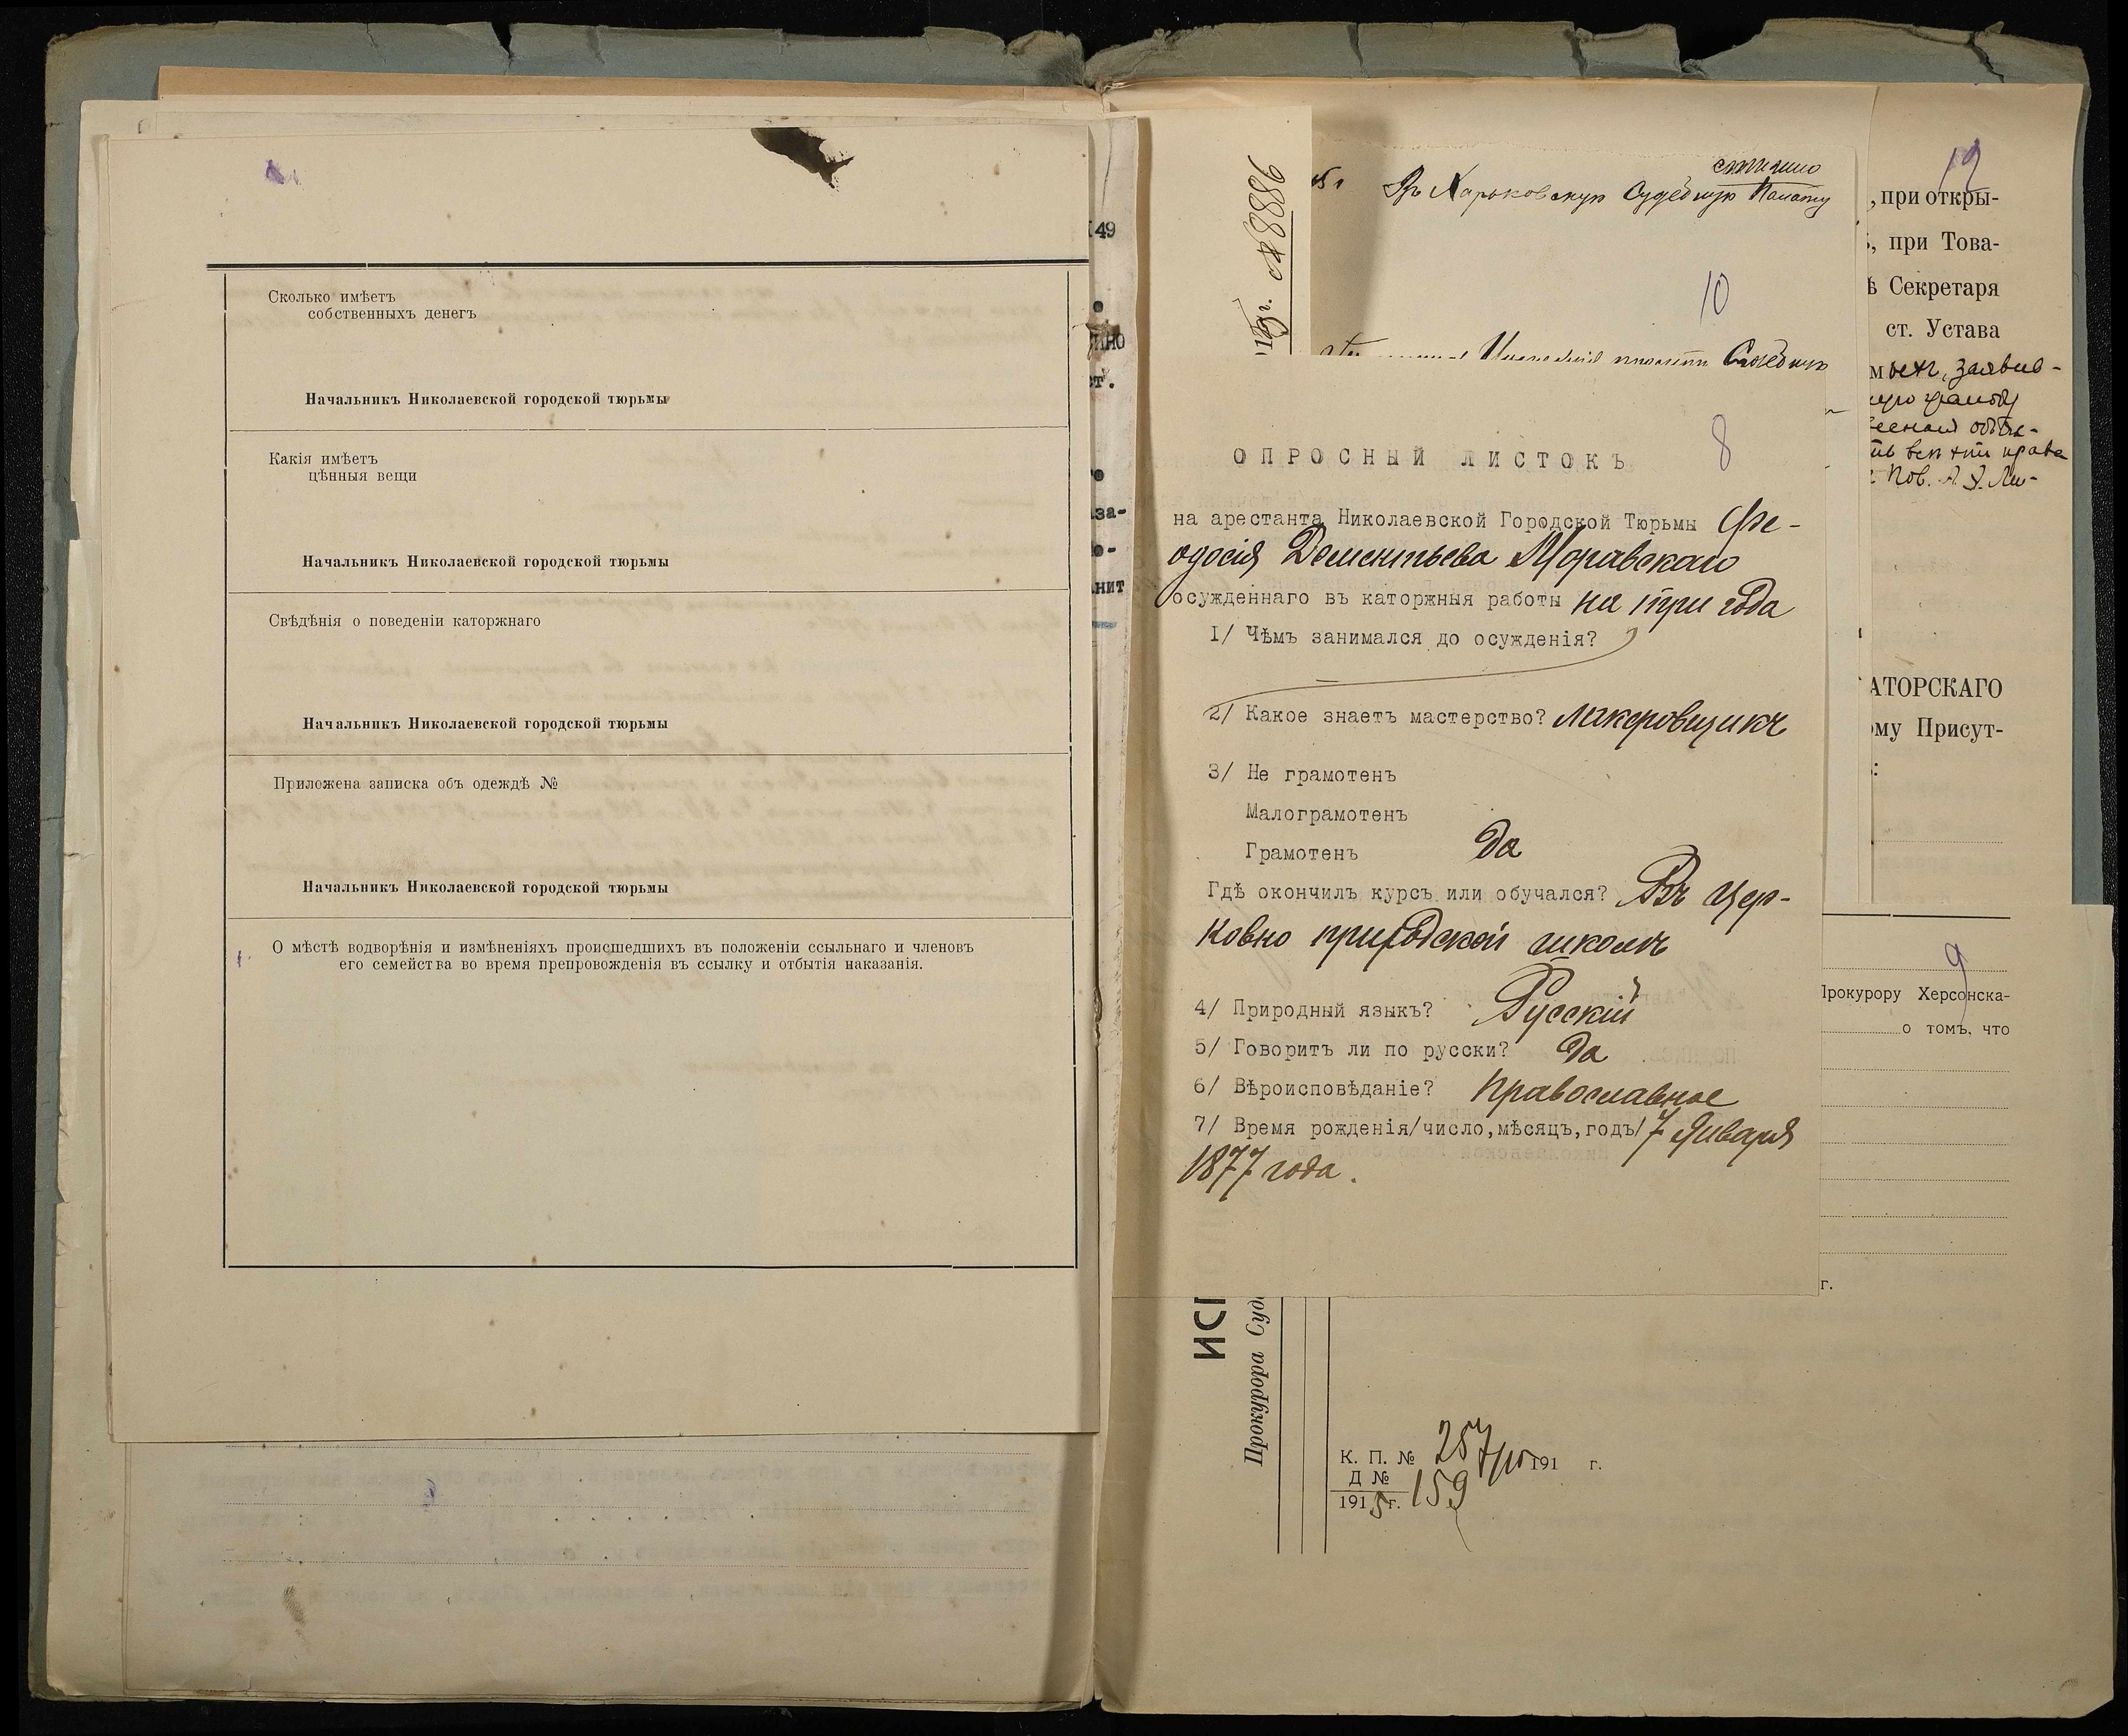 Сколько имѣетъ
собственныхъ денегъ
Начальникъ Николаевской городской тюрьмы
Какія имѣетъ
цѣнныя вещи
Начальникъ Николаевской городской тюрьмы
Свѣдѣнія о поведеніи каторжнаго
Начальникъ Николаевской городской тюрьмы
Приложена записка объ одеждѣ №
Начальникъ Николаевской городской тюрьмы
О мѣстѣ водворѣнія и измѣненіяхъ происшедшихъ въ положеніи ссыльнаго и членовъ
его семейства во время препровожденія въ ссылку и отбытія наказанія.
49
ст.
аза-
нит
№ 8886
Въ Харьковскую Судебную Палату
10
8
ОПРОСНЫЙ ЛИСТОКЪ
на арестанта Николаевской Городской Тюрьмы Фе-
одосія Дементьева Моравскаго
осужденнаго въ каторжныя работы на три года
1/ Чѣмъ занимался до осужденія?
2/ Какое знаетъ мастерство? лакировщикъ
3/ Не грамотенъ
Малограмотенъ
Грамотенъ Да
Гдѣ окончилъ курсъ или обучался? Въ цер-
ковно приходской школѣ
4/ Природный языкъ? Русскій
5/ Говоритъ ли по русски? Да
6/ Вѣроисповѣданіе? Православное
7/ Время рожденія/число,мѣсяцъ,годъ/ 7 Января
1877 года.
12
, при откры-
, при Това-
ѣ Секретаря
ст. Устава
заявив-
права
Пов.
АТОРСКАГО
ому Присут-
:
9
Прокурору Херсонска-
о томъ, что
г.
Прокурора Суд
К. П. № 257 191 г.
Д № 159
1915 г.